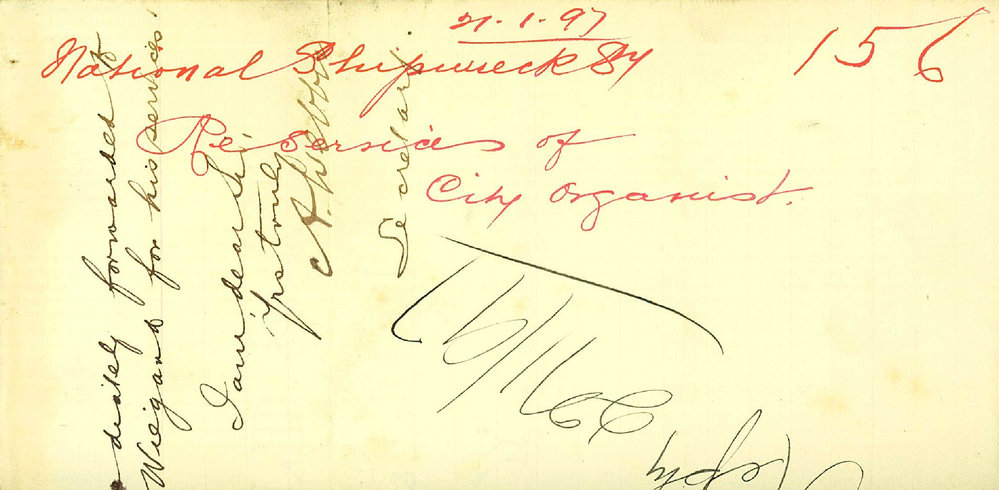 21.1.97
National Shipwreck Sy
156
Re Services of
City Organist.
diately forwarded to
Wiegand for his services.
I am dear Sir
Yrs truly
A. Webb
Secretary
22/1/97
Reply